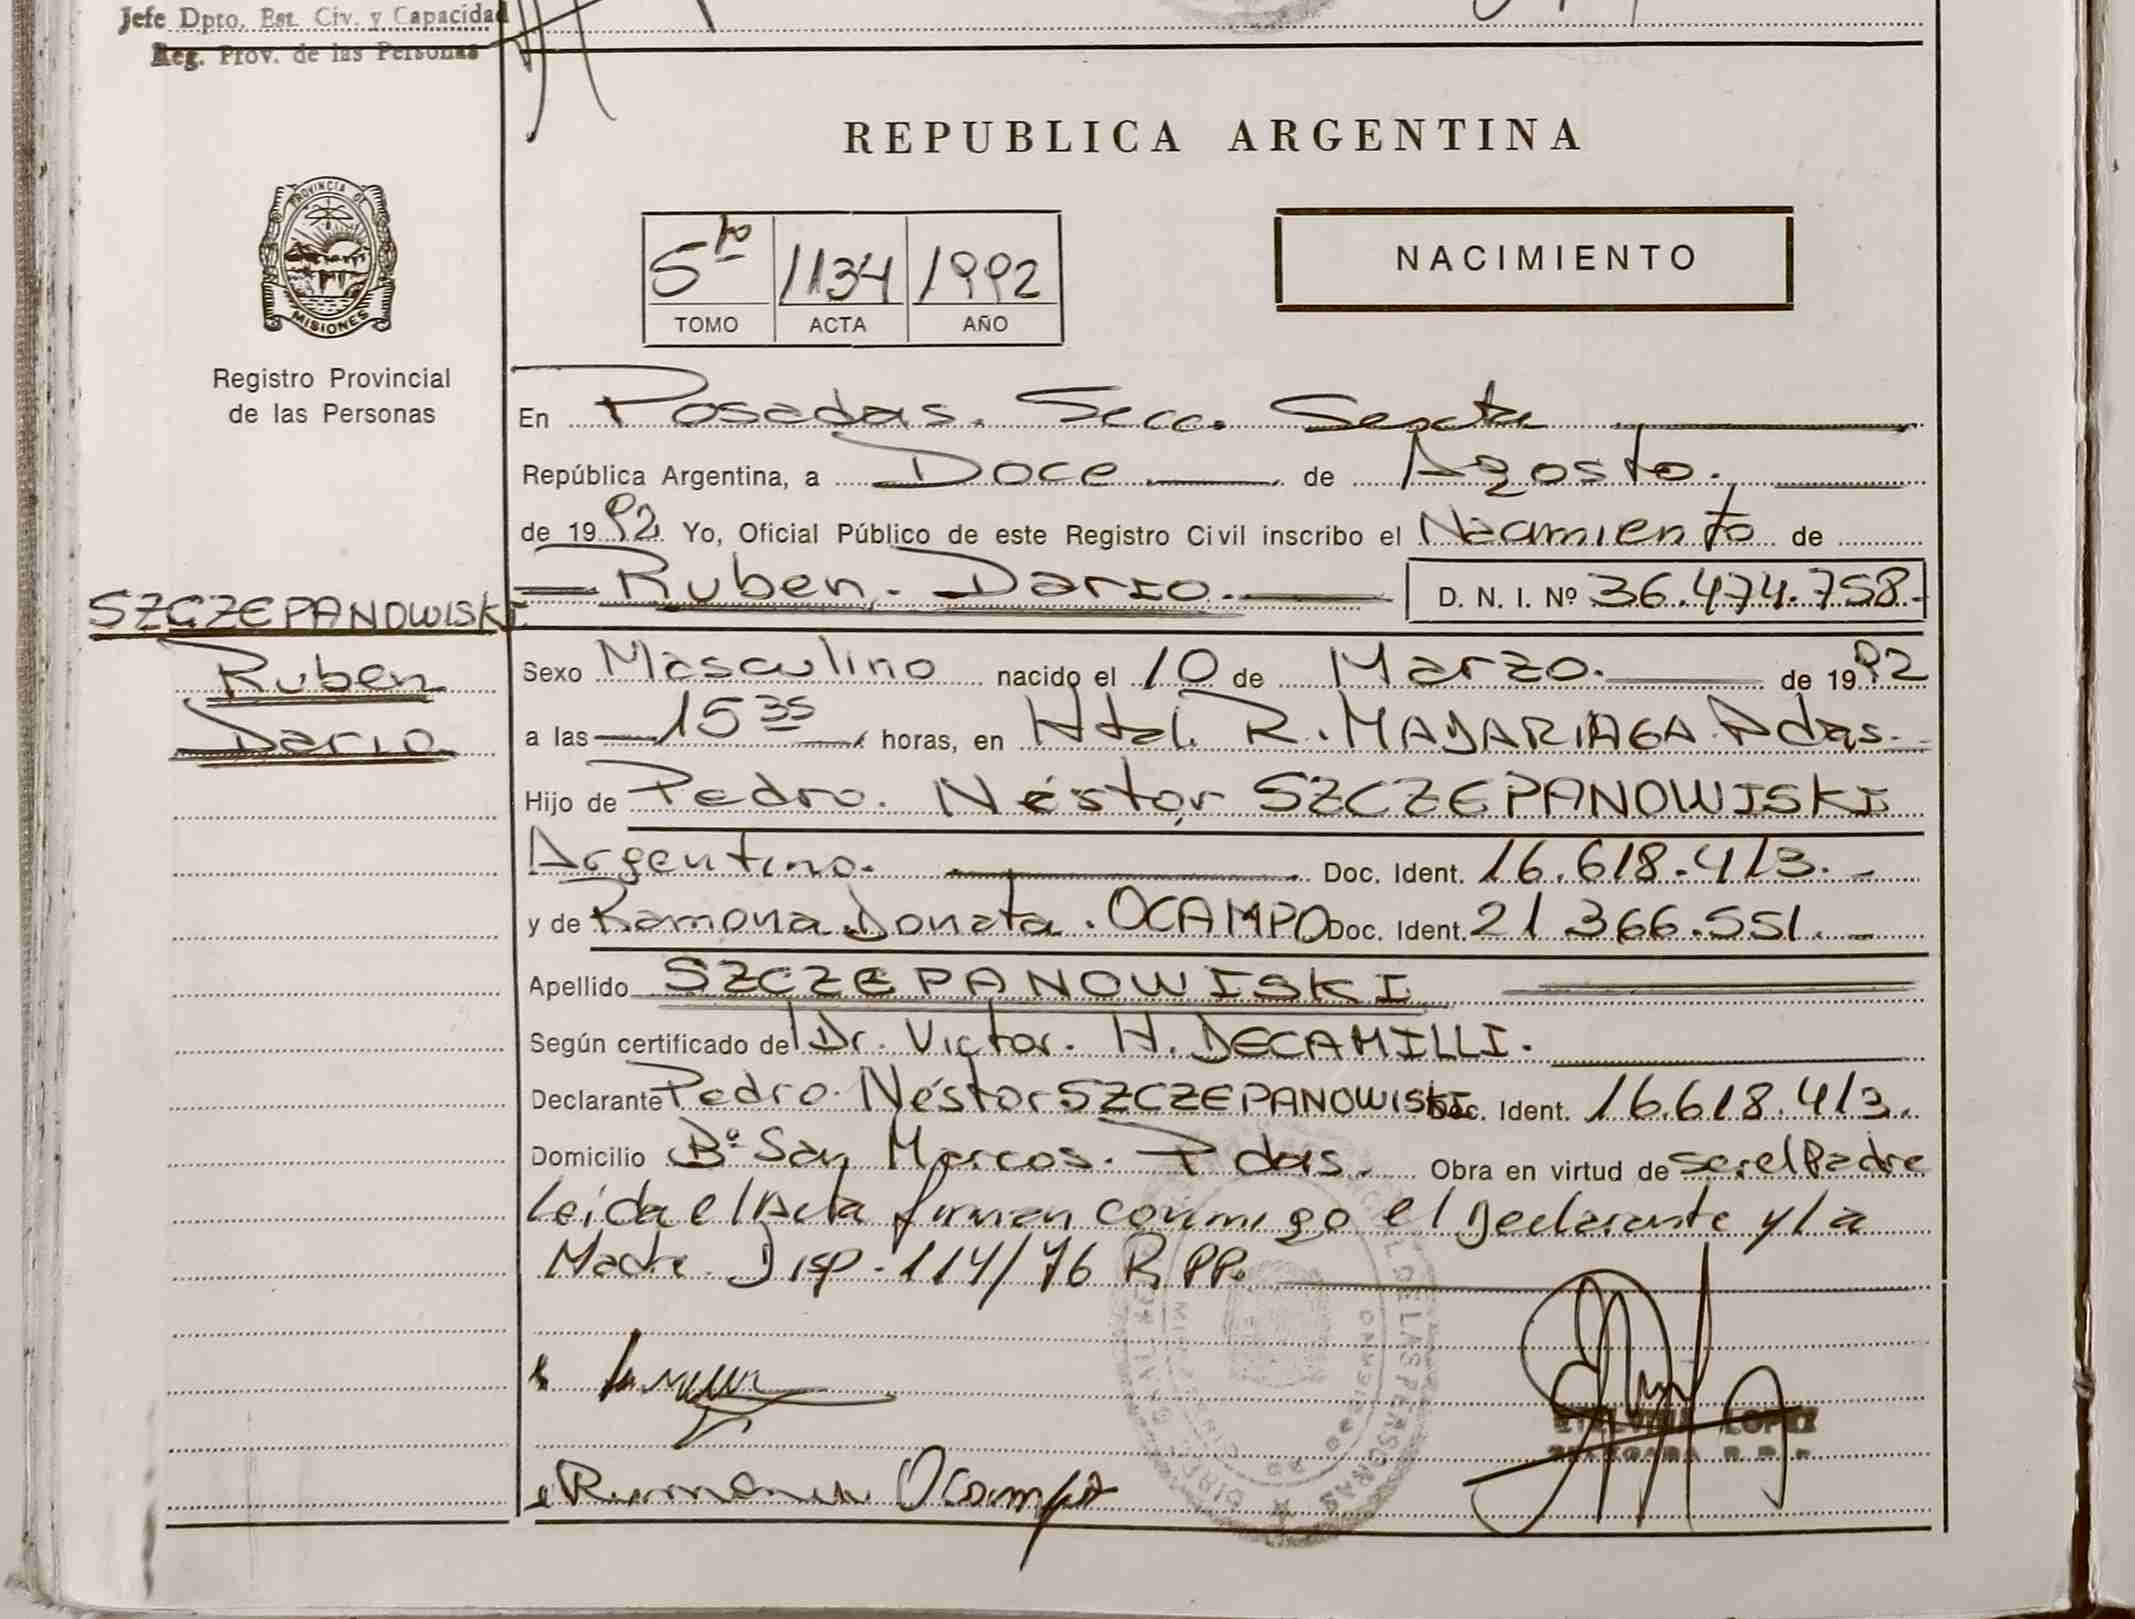 Jefe Dpto. Est. Civ. y Capacidad
Reg. Prov. de las Personas
REPUBLICA ARGENTINA
PROVINCIA DE
MISIONES
Registro Provincial
de las Personas
5to 1134 1992
TOMO ACTA AÑO
NACIMIENTO
En Posadas. Secc. Sexta
República Argentina, a Doce de Agosto.
de 1992. Yo, Oficial Público de este Registro Civil inscribo el Nacimiento de
Ruben. Darío. D. N. I. Nº 36.474.758.-
SZCZEPANOWISKI
Ruben
Dario
Sexo Masculino nacido el 10 de Marzo. de 1992
a las 15 35 horas, en Htal. R. MADARIAGA Pdas.-
Hijo de Pedro. Néstor SZCZEPANOWISKI
Argentino. Doc. Ident. 16.618.413.-
y de Ramona Donata. OCAMPO Doc. Ident. 21 366.551.-
Apellido SZCZEPANOWISKI
Según certificado del Dr. Victor. H. DECAMILLI.
Declarante Pedro. Néstor SZCZEPANOWISKI Doc. Ident. 16.618.413.
Domicilio Bº San Marcos. Pdas. Obra en virtud de ser el Padre
Leída el Acta firman conmigo el Declarante y la
Madre. Disp. 114/76 R.PP.
Ramona Ocampo
LOPEZ